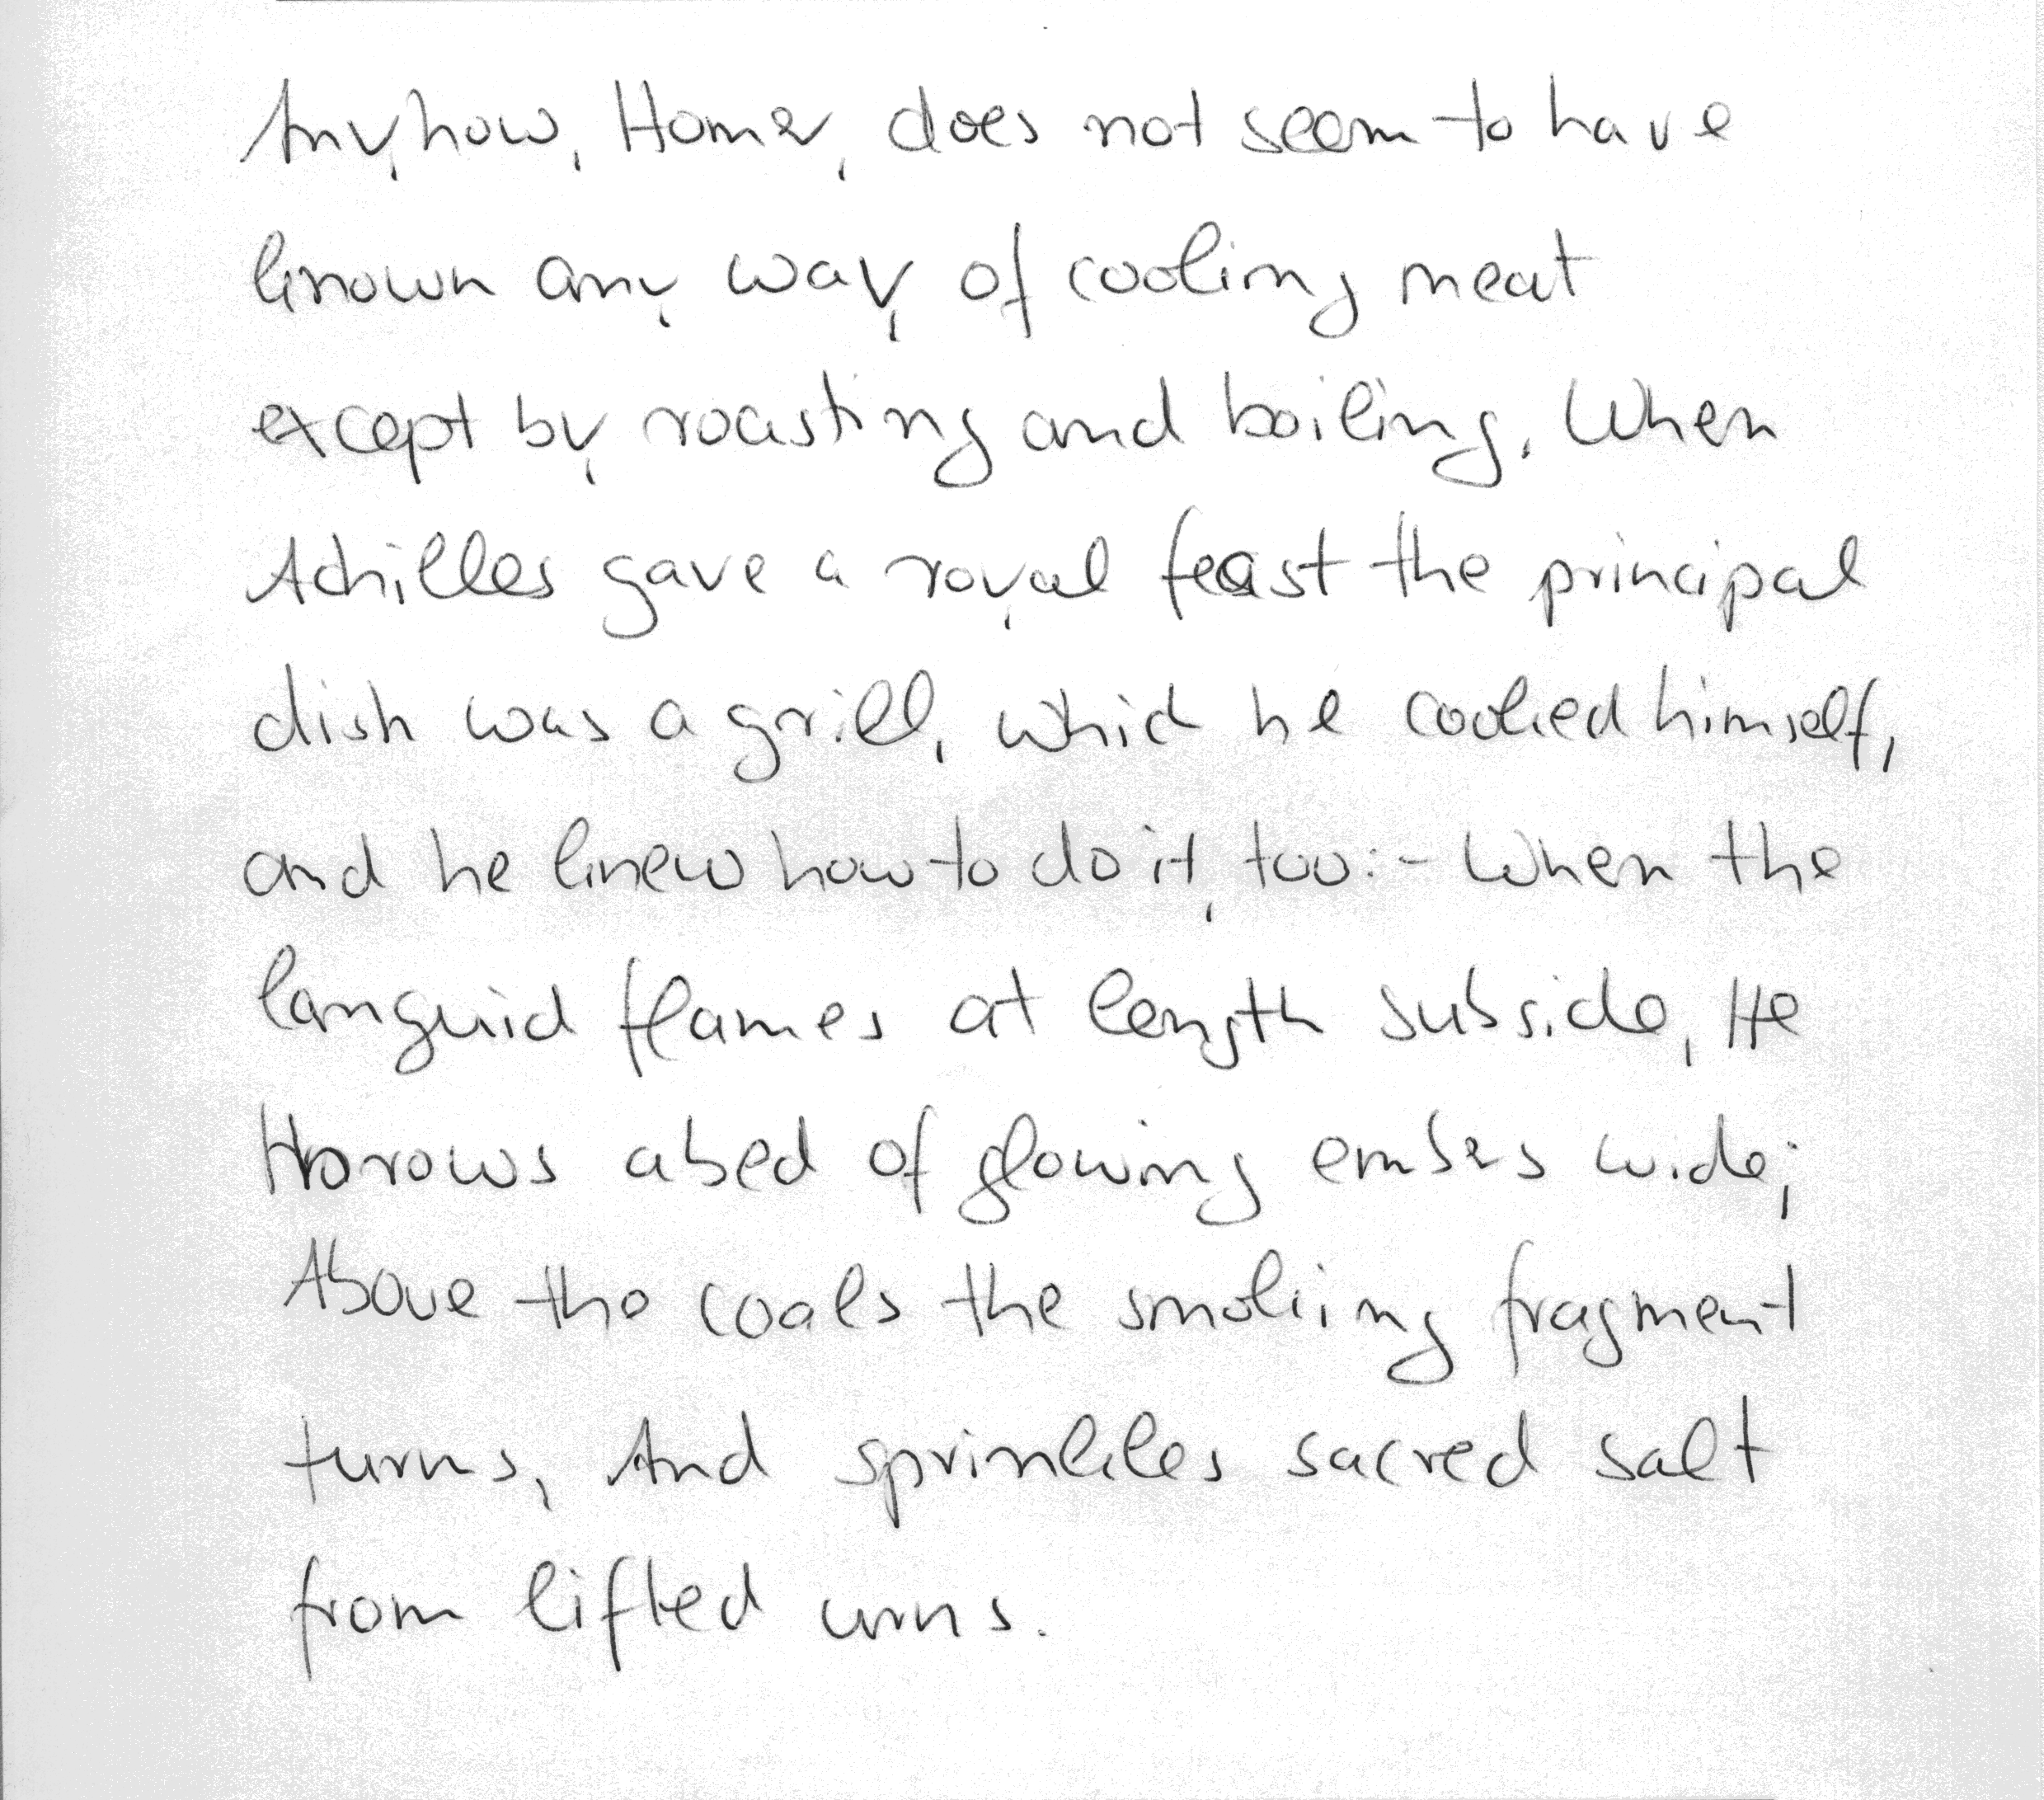 Anyhow, Homer, does not seem to have
known any way of cooking meat
except by roasting and boiling. When
Achilles gave a royal feast the principal
dish was a grill, which he cooked himself,
and he knew how to do it, too:- When the
languid flames at length subside, He
a bed of glowing embers wide;
Above the coals the smoking fragment
turns, And sprinkles sacred salt
from lifted urns.